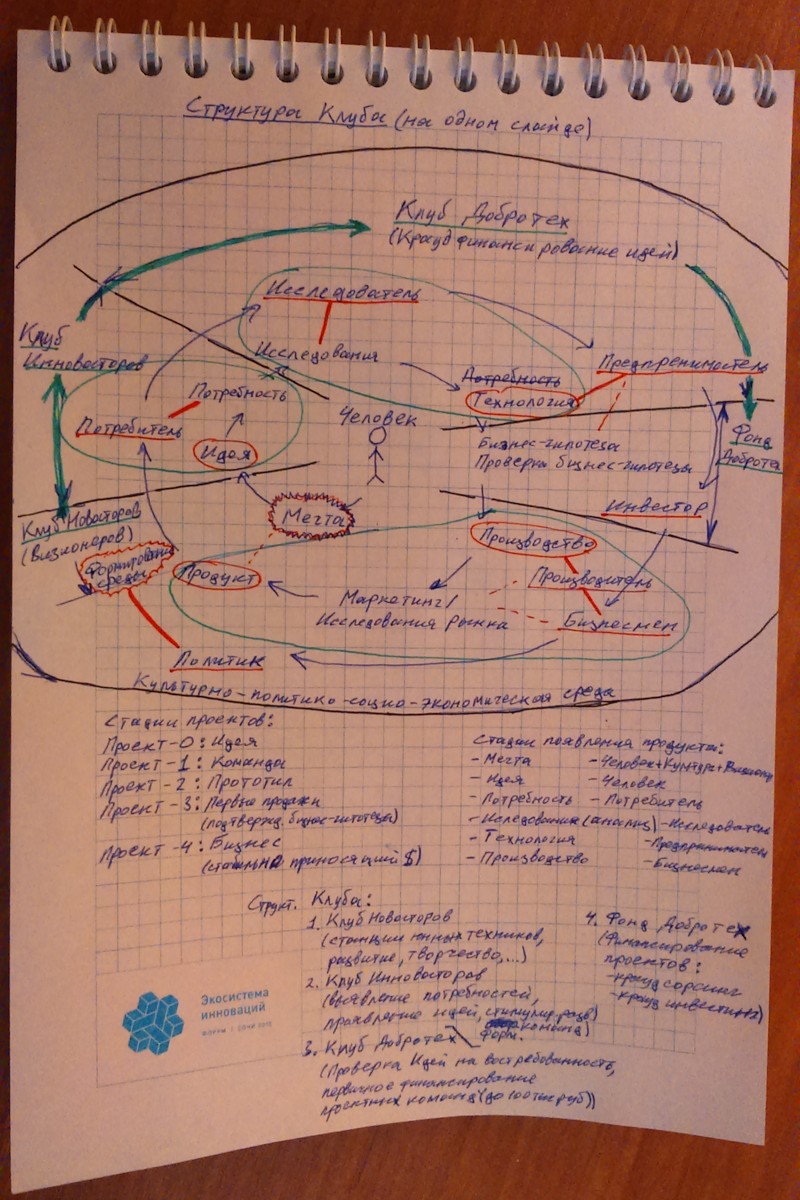 Структура Клуба (на одном слайде)
Клуб Добротех
(Крауд финансирование идей)
Исследователь
Клуб
Инноваторов
Исследования
Предприниматель
Потребность
Потребность
Технология
Человек
Потребитель
Идея
Бизнес-гипотеза
Проверка бизнес-гипотезы
Фонд
Доброте
Инвестор
Мечта
Клуб Новаторов
(Визионеров)
Производство
Формирование
среды
Продукт
Производитель
Маркетинг/
Исследования рынка
Бизнесмен
Политик
Культурно-политико-социо-экономическая среда
Стадии проектов:
Проект-0: Идея
Проект-1: Команда
Проект-2: Прототип
Проект-3: Первые продажи
(подтвержд. бизнес-гипотезы)
Проект-4: Бизнес
(стабильно приносящий $)
Стадии появления продукта:
- Мечта - Человек+Культура+Визионер
- Идея - Человек
- Потребность - Потребитель
- Исследования (анализ) - Исследователь
- Технология - Предприниматель
- Производство - Бизнесмен
Структ. Клуба:
1. Клуб Новаторов
(станции юных техников,
развитие, творчество,...)
2. Клуб Инноваторов
(выявление потребностей,
проявление идей,
форм. команд)
3. Клуб Добротех
(Проверка Идей на востребованность,
первичное финансирование
проектных команд (до 100 тыс руб))
4. Фонд Добротех
(Финансирование
проектов:
- крауд сорсинг
- крауд инвестинг)
Экосистема
инноваций